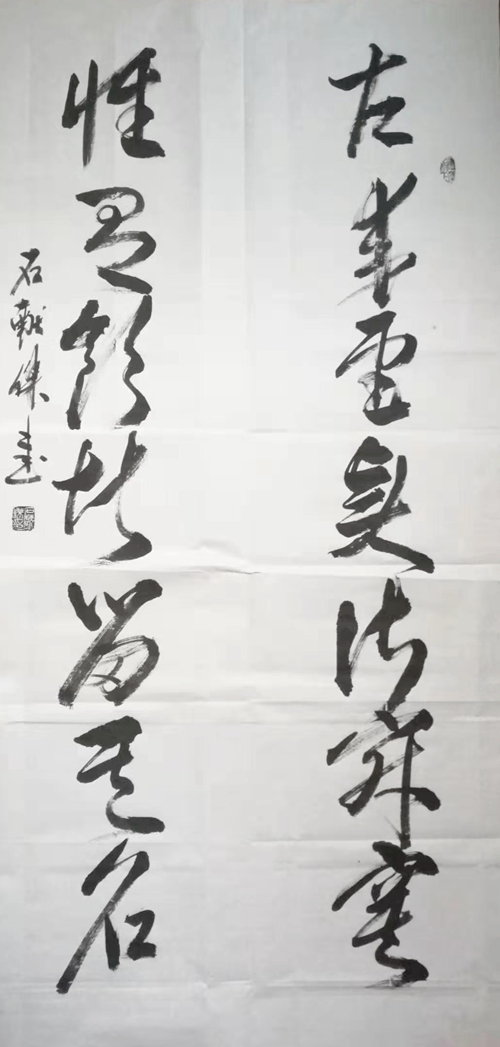 古来圣贤皆寂寞
惟有饮者留其名
石献杰书